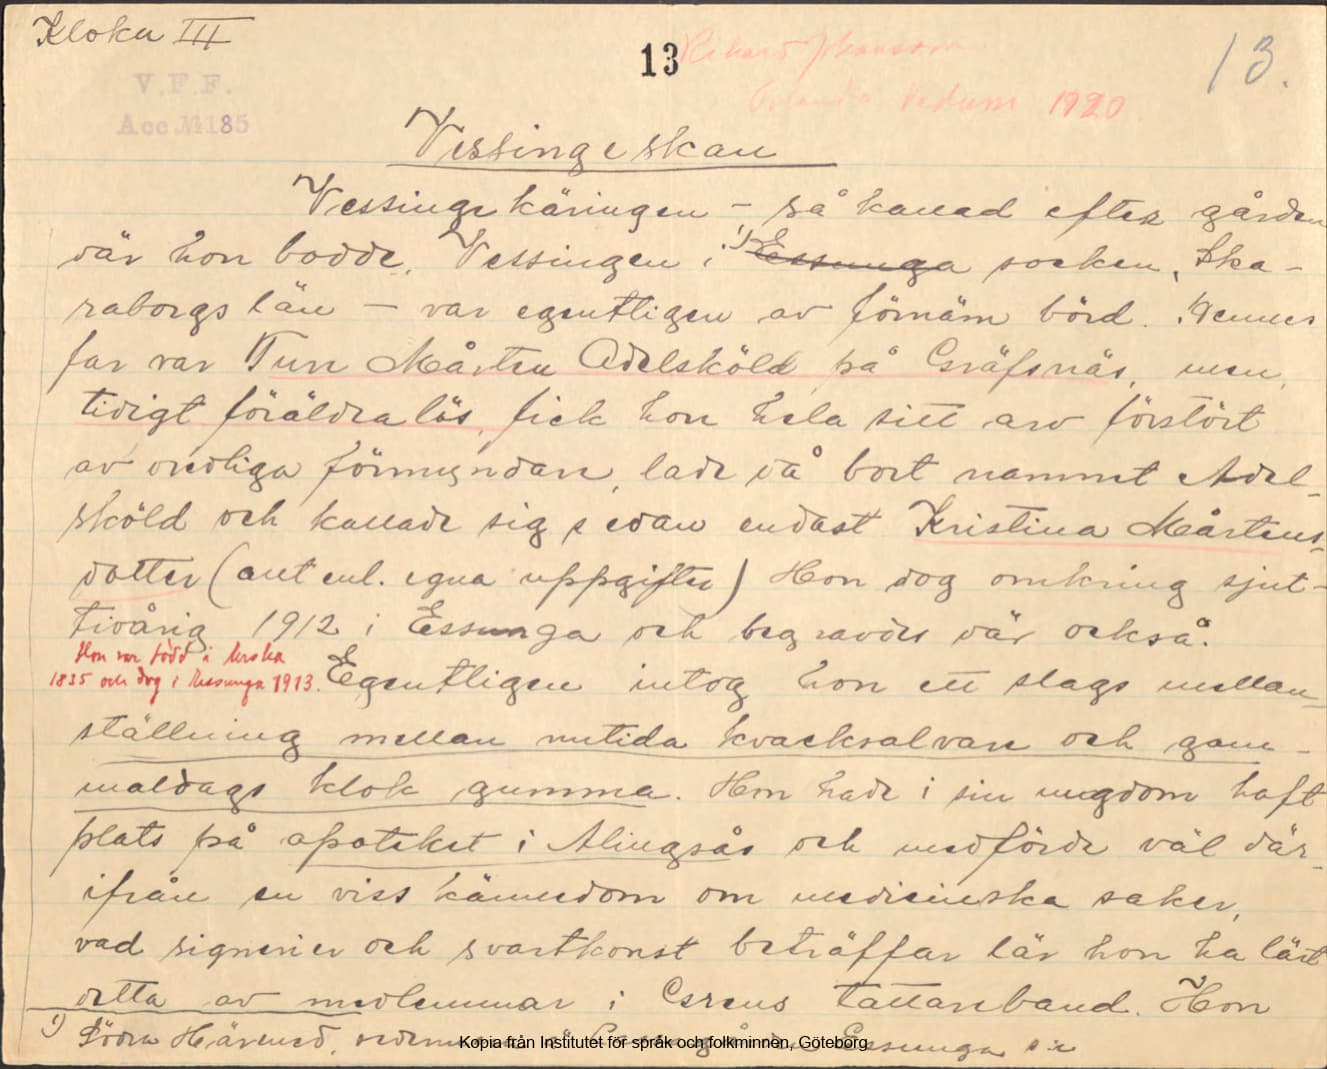 Kloka III
13
13.
V.F.F.
Acc. № 185
Vedum 1920
Vessingeskan
Vessinge käringen - så kallad efter gården
där hon bodde, Vessingen i ¹) Essunga socken, Ska-
raborgs län - var egentligen av förnäm börd. Hennes
far var Ture Mårten Adelsköld på Gräfsnäs, men,
tidigt föräldralös, fick hon hela sitt arv förstört
av oredliga förmyndare, lade då bort namnet Adel-
sköld och kallade sig sedan endast Kristina Mårtens-
dotter (allt enl. egna uppgifter) Hon dog omkring sjut-
tioårig 1912 i Essunga och begravdes där också.
Hon var född i
1835 och dog i Essunga 1913.
Egentligen intog hon ett slags mellan-
ställning mellan nutida kvacksalvare och gam-
maldags klok gumma. Hon hade i sin ungdom haft
plats på apoteket i Alingsås och medförde väl där-
ifrån en viss kännedom om medicinska saker,
vad signerier och svartkonst beträffar lär hon ha lärt
detta av medlemmar i tattareband. Hon
¹) Södra Härened, Essunga s:n
Kopia från Institutet för språk och folkminnen, Göteborg